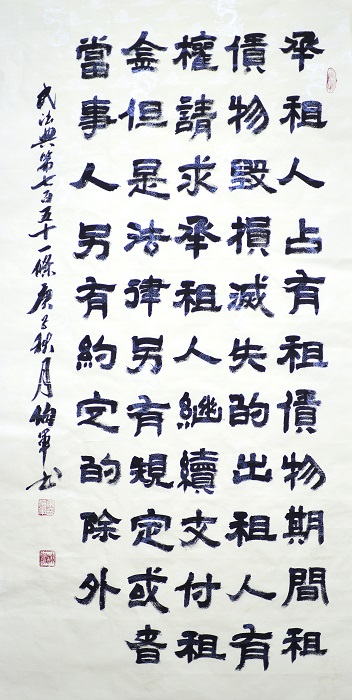 承租人占有租賃物期間租
賃物毀損滅失的出租人有
權請求承租人繼續支付租
金但是法律另有規定或者
當事人另有約定的除外
民法典第七百五十一條庚子秋月軍書